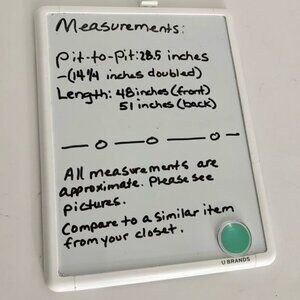 Measurements:
Pit-to-Pit: 28.5 inches
-(14 1/4 inches doubled)
Length: 48 inches (front)
51 inches (back)
All measurements are
approximate. Please see
pictures.
Compare to a similar item
from your closet.
U BRANDS